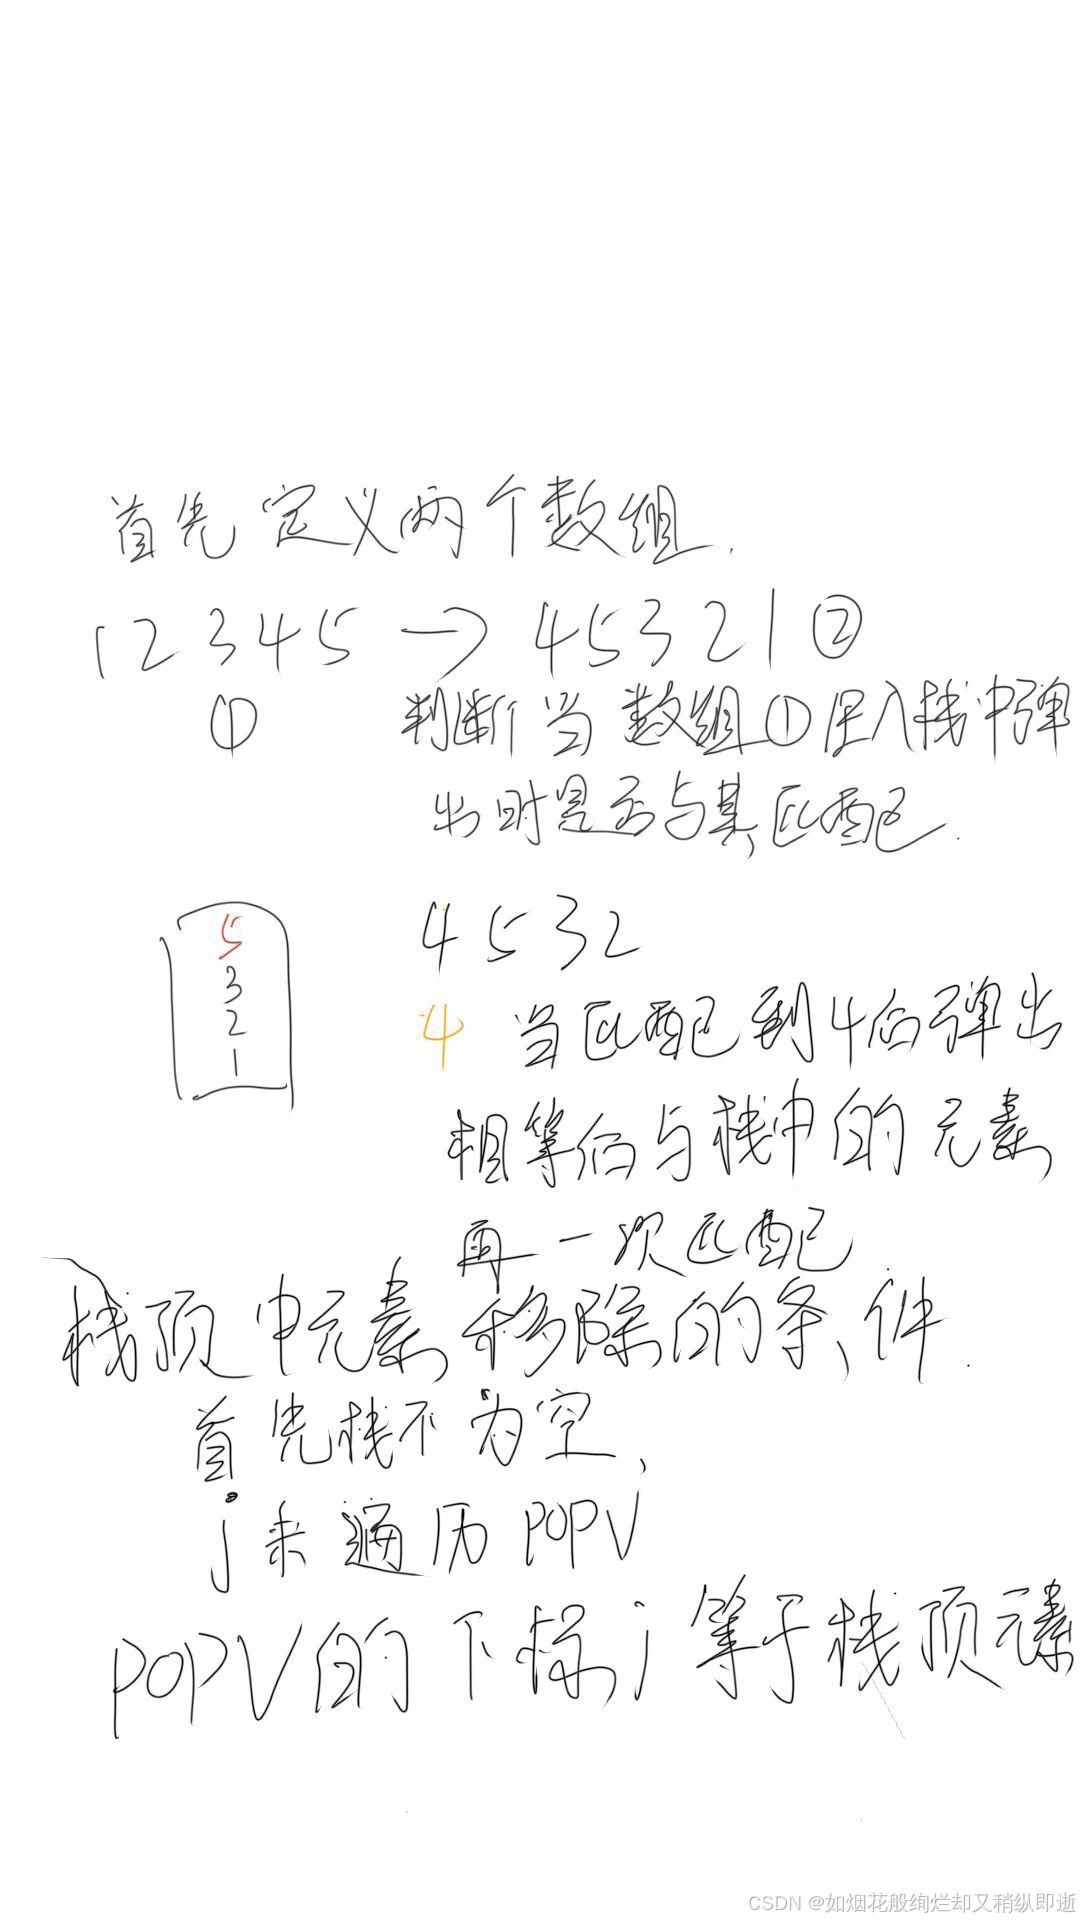 首先定义两个数组.
12345 → 45321②
① 判断当数组①压入栈中弹
出时是否与其匹配.
5
3
2
1
4532
4 当匹配到4后弹出
相等后与栈中的元素
再一次匹配
栈顶中元素移除的条件.
首先栈不为空,
j来遍历POPV
POPV的下标j等于栈顶元素
CSDN @如烟花般绚烂却又稍纵即逝